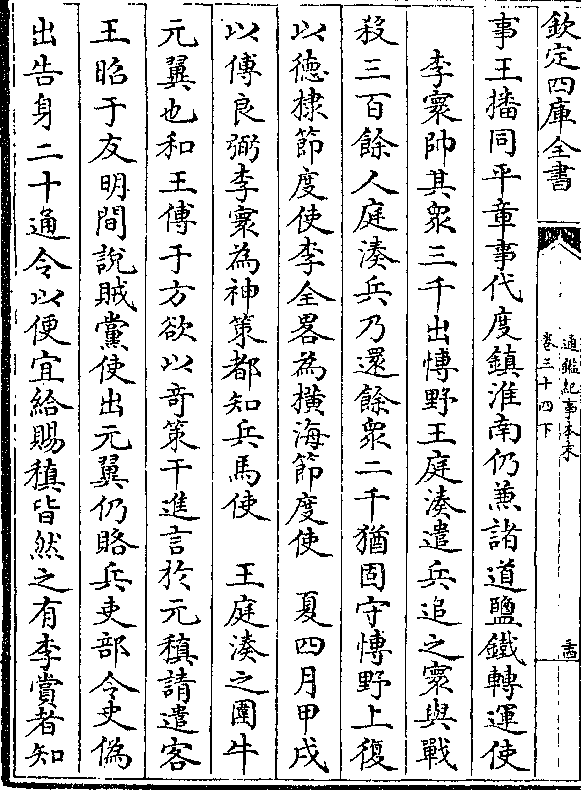 欽定四庫全書
通鑑紀事本末
卷三十四下
事王播同平章事代度鎮淮南仍兼諸道鹽鐵轉運使
李寰帥其衆三千出愽野王庭湊遣兵追之寰與戰
殺三百餘人庭湊兵乃還餘衆二千猶固守愽野上復
以德棣節度使李全畧為横海節度使 夏四月甲戌
以傅良弼李寰為神策都知兵馬使 王庭湊之圍牛
元翼也和王傅于方欲以竒策干進言於元稹請遣客
王昭于友明間說賊黨使出元翼仍賂兵吏部令史偽
出告身二十通令以便宜給賜稹皆然之有李賞者知